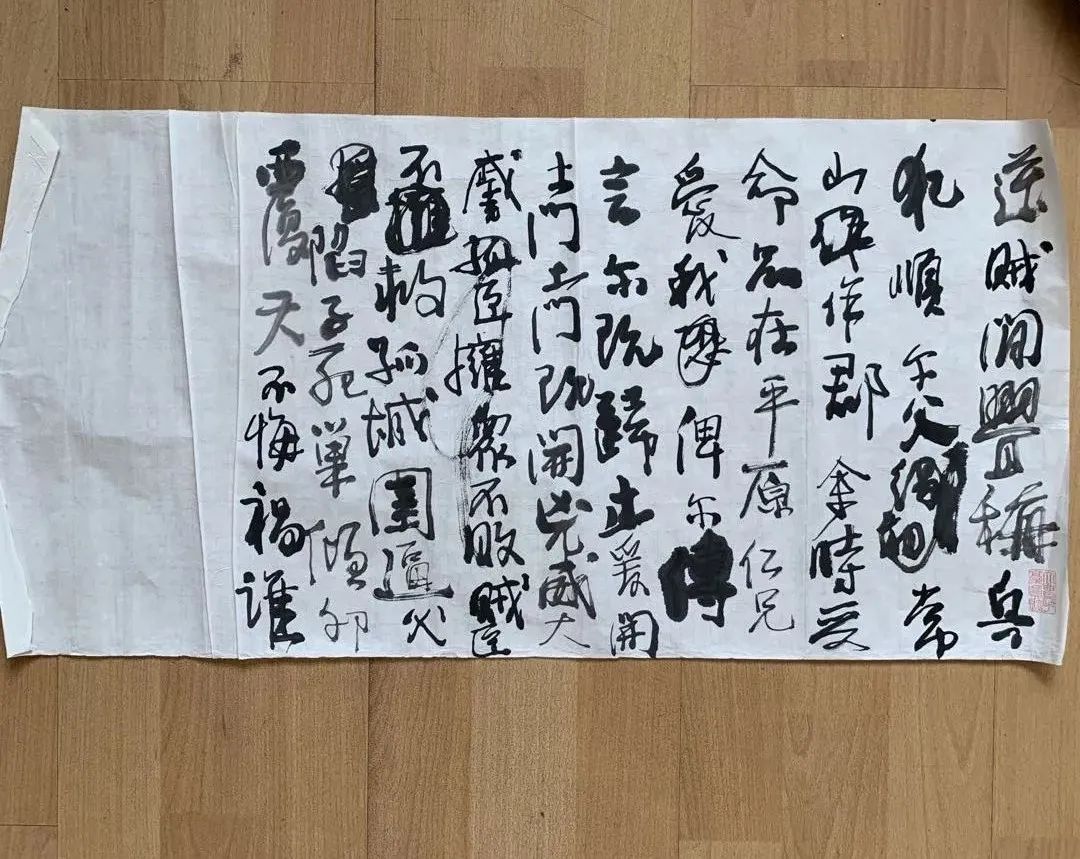 逆賊閒釁稱兵
犯順尔父常
山作郡余時受
命亦在平原仁兄
愛我俾尔傳
言尔既歸止爰開
土門土門既開凶威大
蹙賊臣擁眾不救賊臣
不救孤城圍逼父
陷子死巢傾卵
覆天不悔禍誰